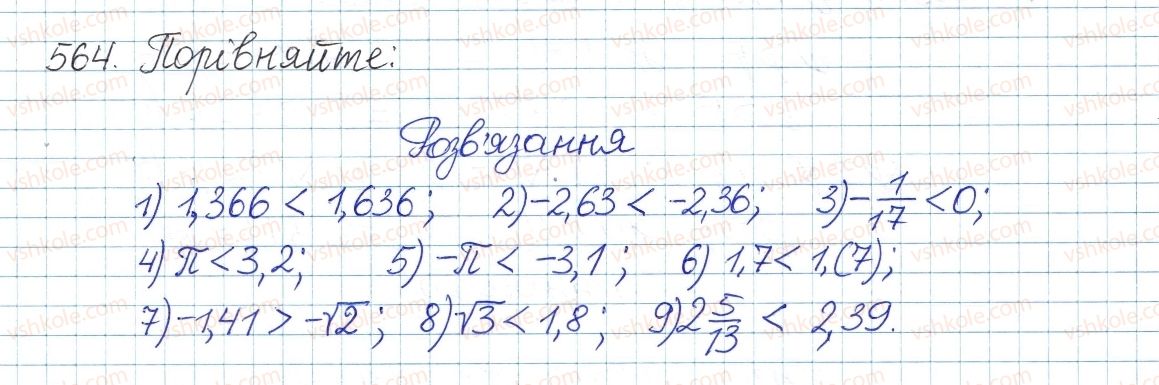 564. Порівняйте:
Розв'язання
1) 1,366 < 1,636; 2) -2,63 < -2,36; 3) -1/17 < 0;
4) π < 3,2; 5) -π < -3,1; 6) 1,7 < 1,(7);
7) -1,41 > -√2; 8) √3 < 1,8; 9) 2 5/13 < 2,39.